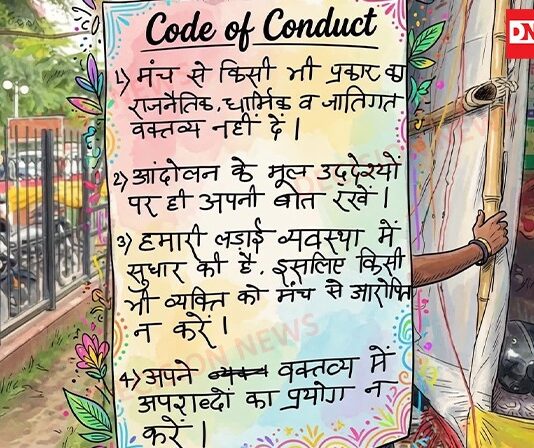 Code of Conduct
DN
1) मंच से किसी भी प्रकार का
राजनैतिक, धार्मिक व जातिगत
वक्तव्य नहीं दें।
2) आंदोलन के मूल उद्देश्यों
पर ही अपनी बात रखें।
3) हमारी लड़ाई व्यवस्था में
सुधार की है, इसलिए किसी
भी व्यक्ति को मंच से आरोपित
न करें।
4) अपने वक्तव्य में
अपशब्दों का प्रयोग न
करें।